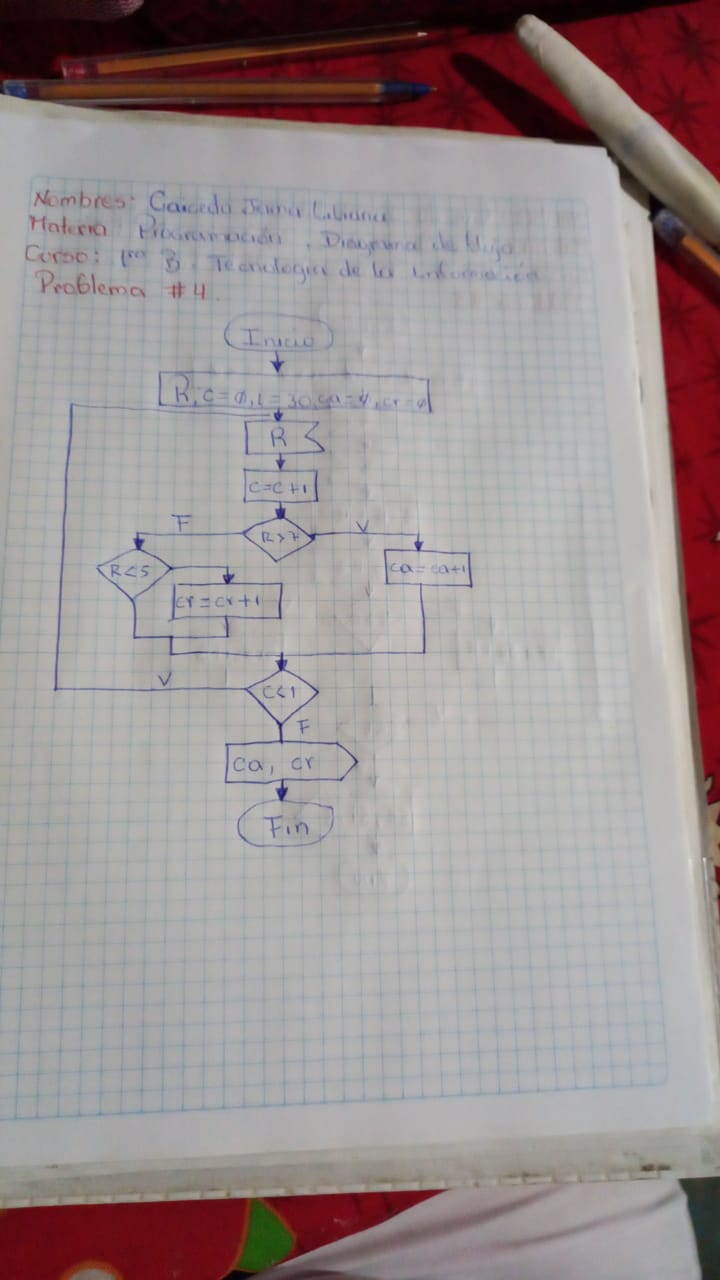 Nombres: Caicedo Liliana
Materia: Programación. Diagrama de flujo
Curso: 1ro B. Tecnologia de la Información
Problema #4
Inicio
R, C=0, L=30, ca=0, cr=0
R
C=C+1
F R>7 V
R<5 ca=ca+1
cr=cr+1
V C<1
F
ca, cr
Fin